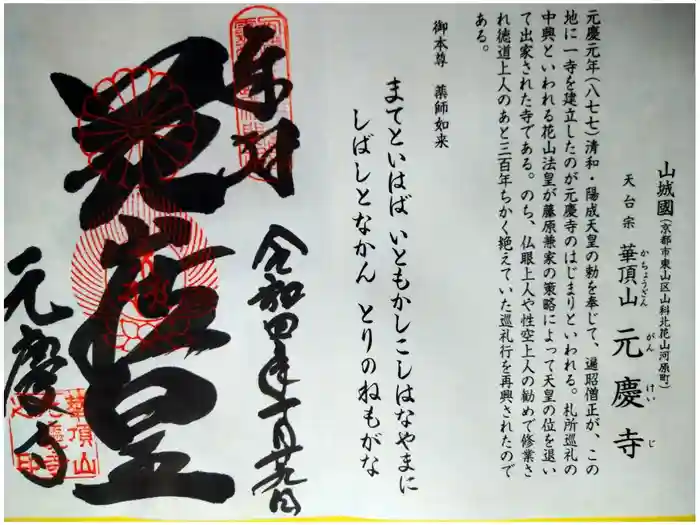 山城國(京都市東山区山科北花山河原町)
天台宗 華頂山 元慶寺
かちょうざん がんけいじ
元慶元年(八七七)清和・陽成天皇の勅を奉じて、遍昭僧正が、この
地に一寺を建立したのが元慶寺のはじまりといわれる。札所巡礼の
中興といわれる花山法皇が藤原兼家の策略によって天皇の位を退い
て出家された寺である。のち、仏眼上人や性空上人の勧めで修業さ
れ徳道上人のあと三百年ちかく絶えていた巡礼行を再興されたので
ある。
御本尊 薬師如来
まてといはば いともかしこしはなやまに
しばしとなかん とりのねもがな
奉拝
令和四年十月廿九日
皇
元慶寺
華頂山
元慶寺
之印